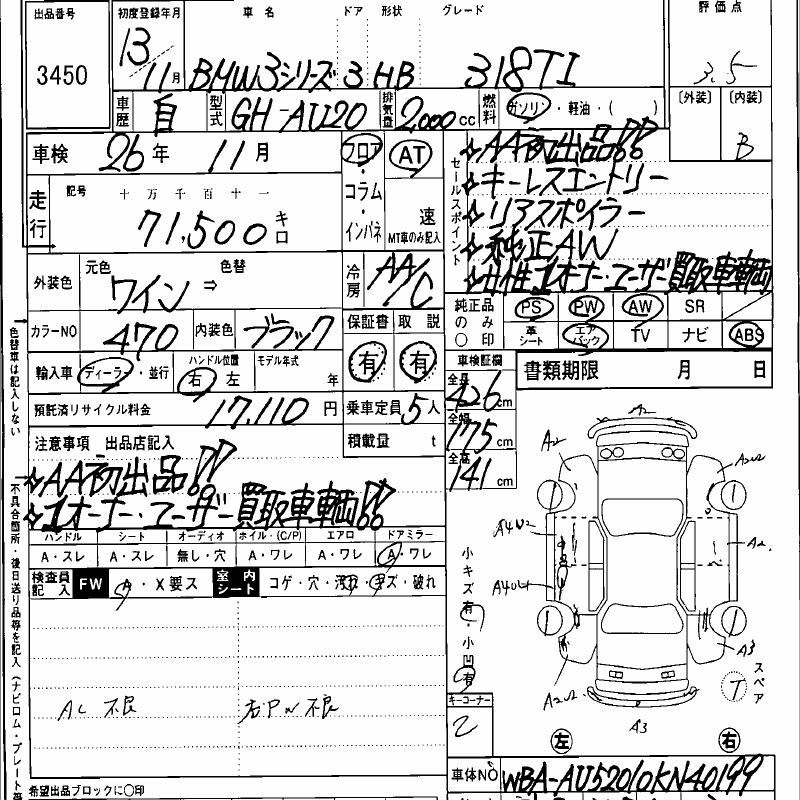 出品番号 初度登録年月 車名 ドア 形状 グレード 評価点
3450 13 11月 BMW3シリーズ 3 HB 318TI 3.5
〔外装〕 〔内装〕
B
車歴 自 型式 GH-AU20 排気量 2,000cc 燃料 ガソリン・軽油・( )
車検 26年 11月 フロア・コラム・インパネ AT 速 MT車のみ記入
走行 記号 十万千百十一
71,500キロ
セールスポイント
☆AA初出品!!
☆キーレスエントリー
☆リアスポイラー
☆純正AW
☆女性1オーナー・ユーザー買取車輌
外装色 元色 ワイン ⇒ 色替 冷房 AA/C
カラーNO 470 内装色 ブラック 保証書 有 取説 有
純正品のみ〇印 PS PW AW SR
革シート エアバック TV ナビ ABS
輸入車 ディーラー・並行 ハンドル位置 右 左 モデル年式 年
預託済リサイクル料金 17,110円 乗車定員 5人
積載量 t
車検証欄
全長 426cm
全幅 175cm
全高 141cm
書類期限 月 日
注意事項 出品店記入
☆AA初出品!!
☆1オーナー・ユーザー買取車輌!!
ハンドル シート オーディオ ホイル・(C/P) エアロ ドアミラー
A・スレ A・スレ 無し・穴 A・ワレ A・ワレ A・ワレ
検査員記入 FW A・X要ス 室内シート コゲ・穴・汚れ・キズ・破れ
AC不良 右PW不良
小キズ有・小凹有
キーコーナー
2
A2
A2
A2
A3
A3
T スペア
左 右
車体NO WBA-AU52010KN40199
希望出品ブロックに〇印
色替車は記入しない
不具合箇所・後日送り品等を記入(ナビロム・プレート等